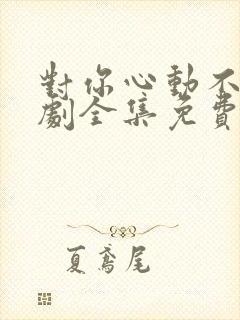 對你心動不
劇全集免費
夏鳶尾